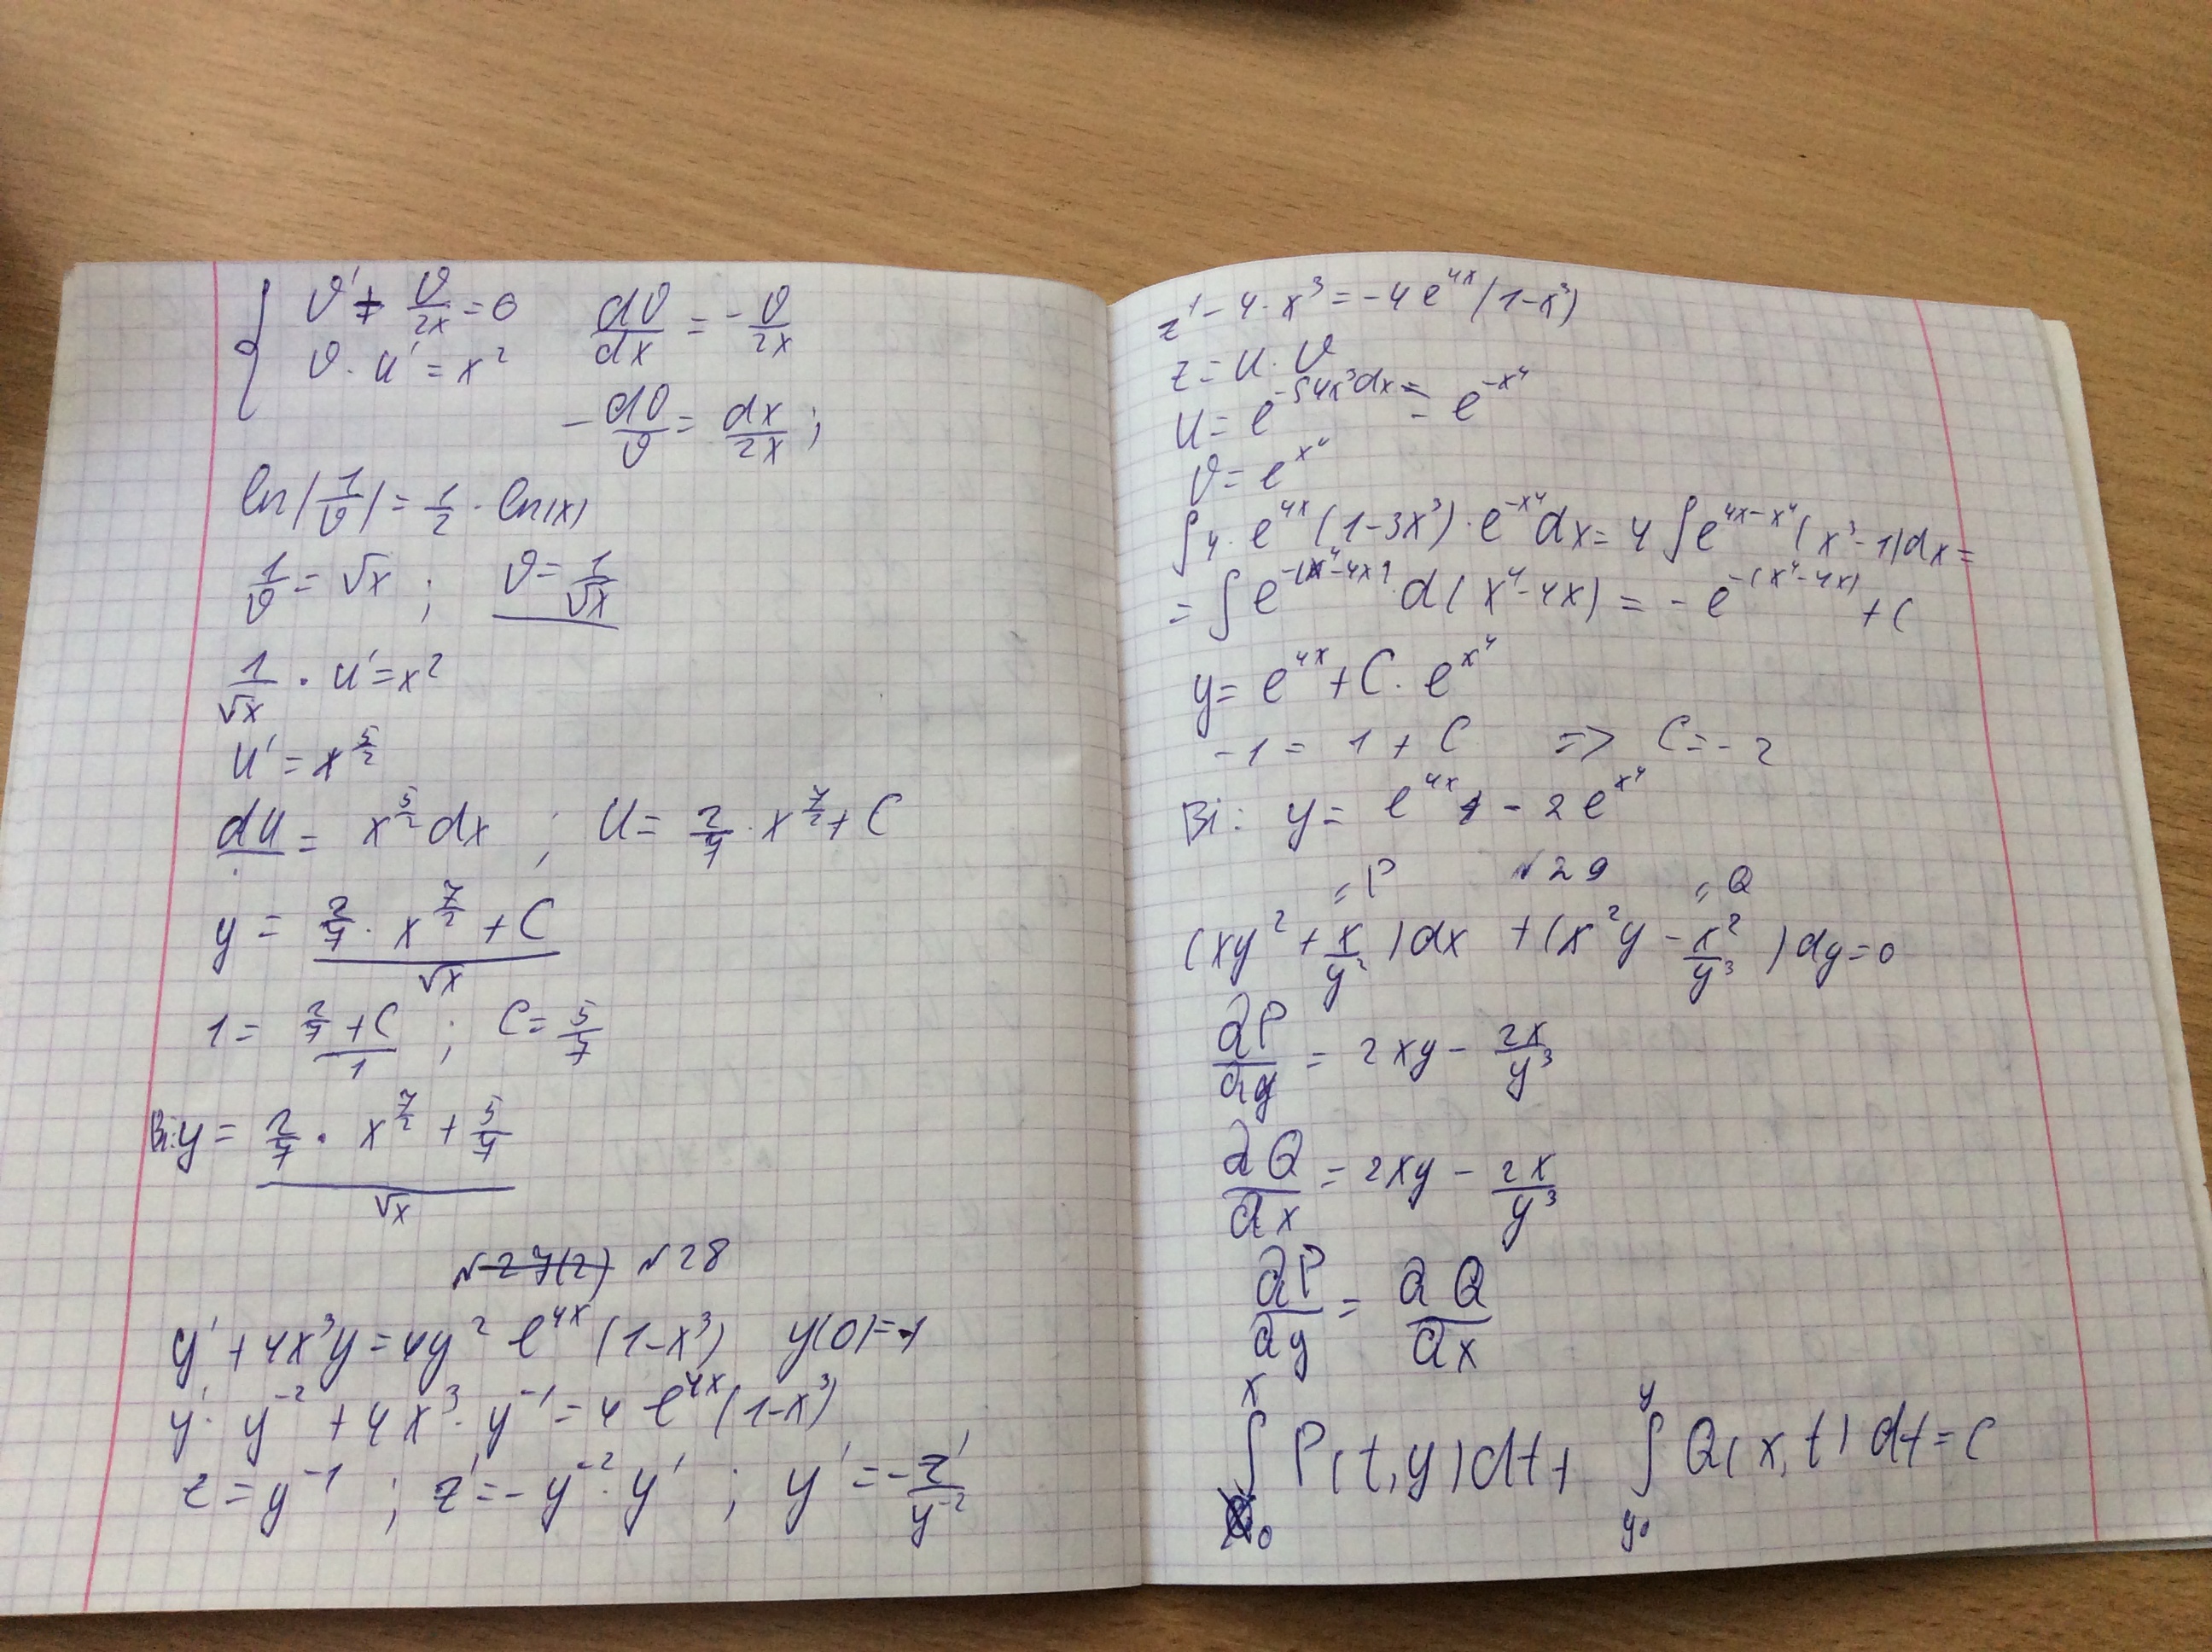 { ϑ' + ϑ/2x = 0    dϑ/dx = - ϑ/2x
ϑ · u' = x²
- dϑ/ϑ = dx/2x ;
ln|1/ϑ| = 1/2 · ln|x|
1/ϑ = √x ; ϑ = 1/√x
1/√x · u' = x²
u' = x^(5/2)
du = x^(5/2) dx ; u = 2/7 · x^(7/2) + C
y = (2/7 · x^(7/2) + C)/√x
1 = (2/7 + C)/1 ; C = 5/7
Ві: y = (2/7 · x^(7/2) + 5/7)/√x
№27(2) №28
y' + 4x³y = 4y² e^(4x) (1-x³)   y(0)=-1
y' · y⁻² + 4x³ · y⁻¹ = 4 e^(4x) (1-x³)
z = y⁻¹ ; z' = - y⁻² · y' ; y' = - z'/y⁻²
z' - 4 · x³ = -4 e^(4x) (1-x³)
z = u · ϑ
u = e^(-∫4x³dx) = e^(-x⁴)
ϑ = e^(x⁴)
∫4 · e^(4x) (1-3x³) · e^(-x⁴) dx = 4 ∫e^(4x-x⁴) (x³-1)dx =
= ∫e^(-(x⁴-4x)) · d(x⁴-4x) = - e^(-(x⁴-4x)) + C
y = e^(4x) + C · e^(x⁴)
-1 = 1 + C => C = -2
Ві: y = e^(4x) - 2e^(x⁴)
=P №29 =Q
(xy² + x/y²)dx + (x²y - x²/y³)dy = 0
∂P/∂y = 2xy - 2x/y³
∂Q/∂x = 2xy - 2x/y³
∂P/∂y = ∂Q/∂x
∫_{x₀}^{x} P(t,y)dt + ∫_{y₀}^{y} Q(x,t)dt = C